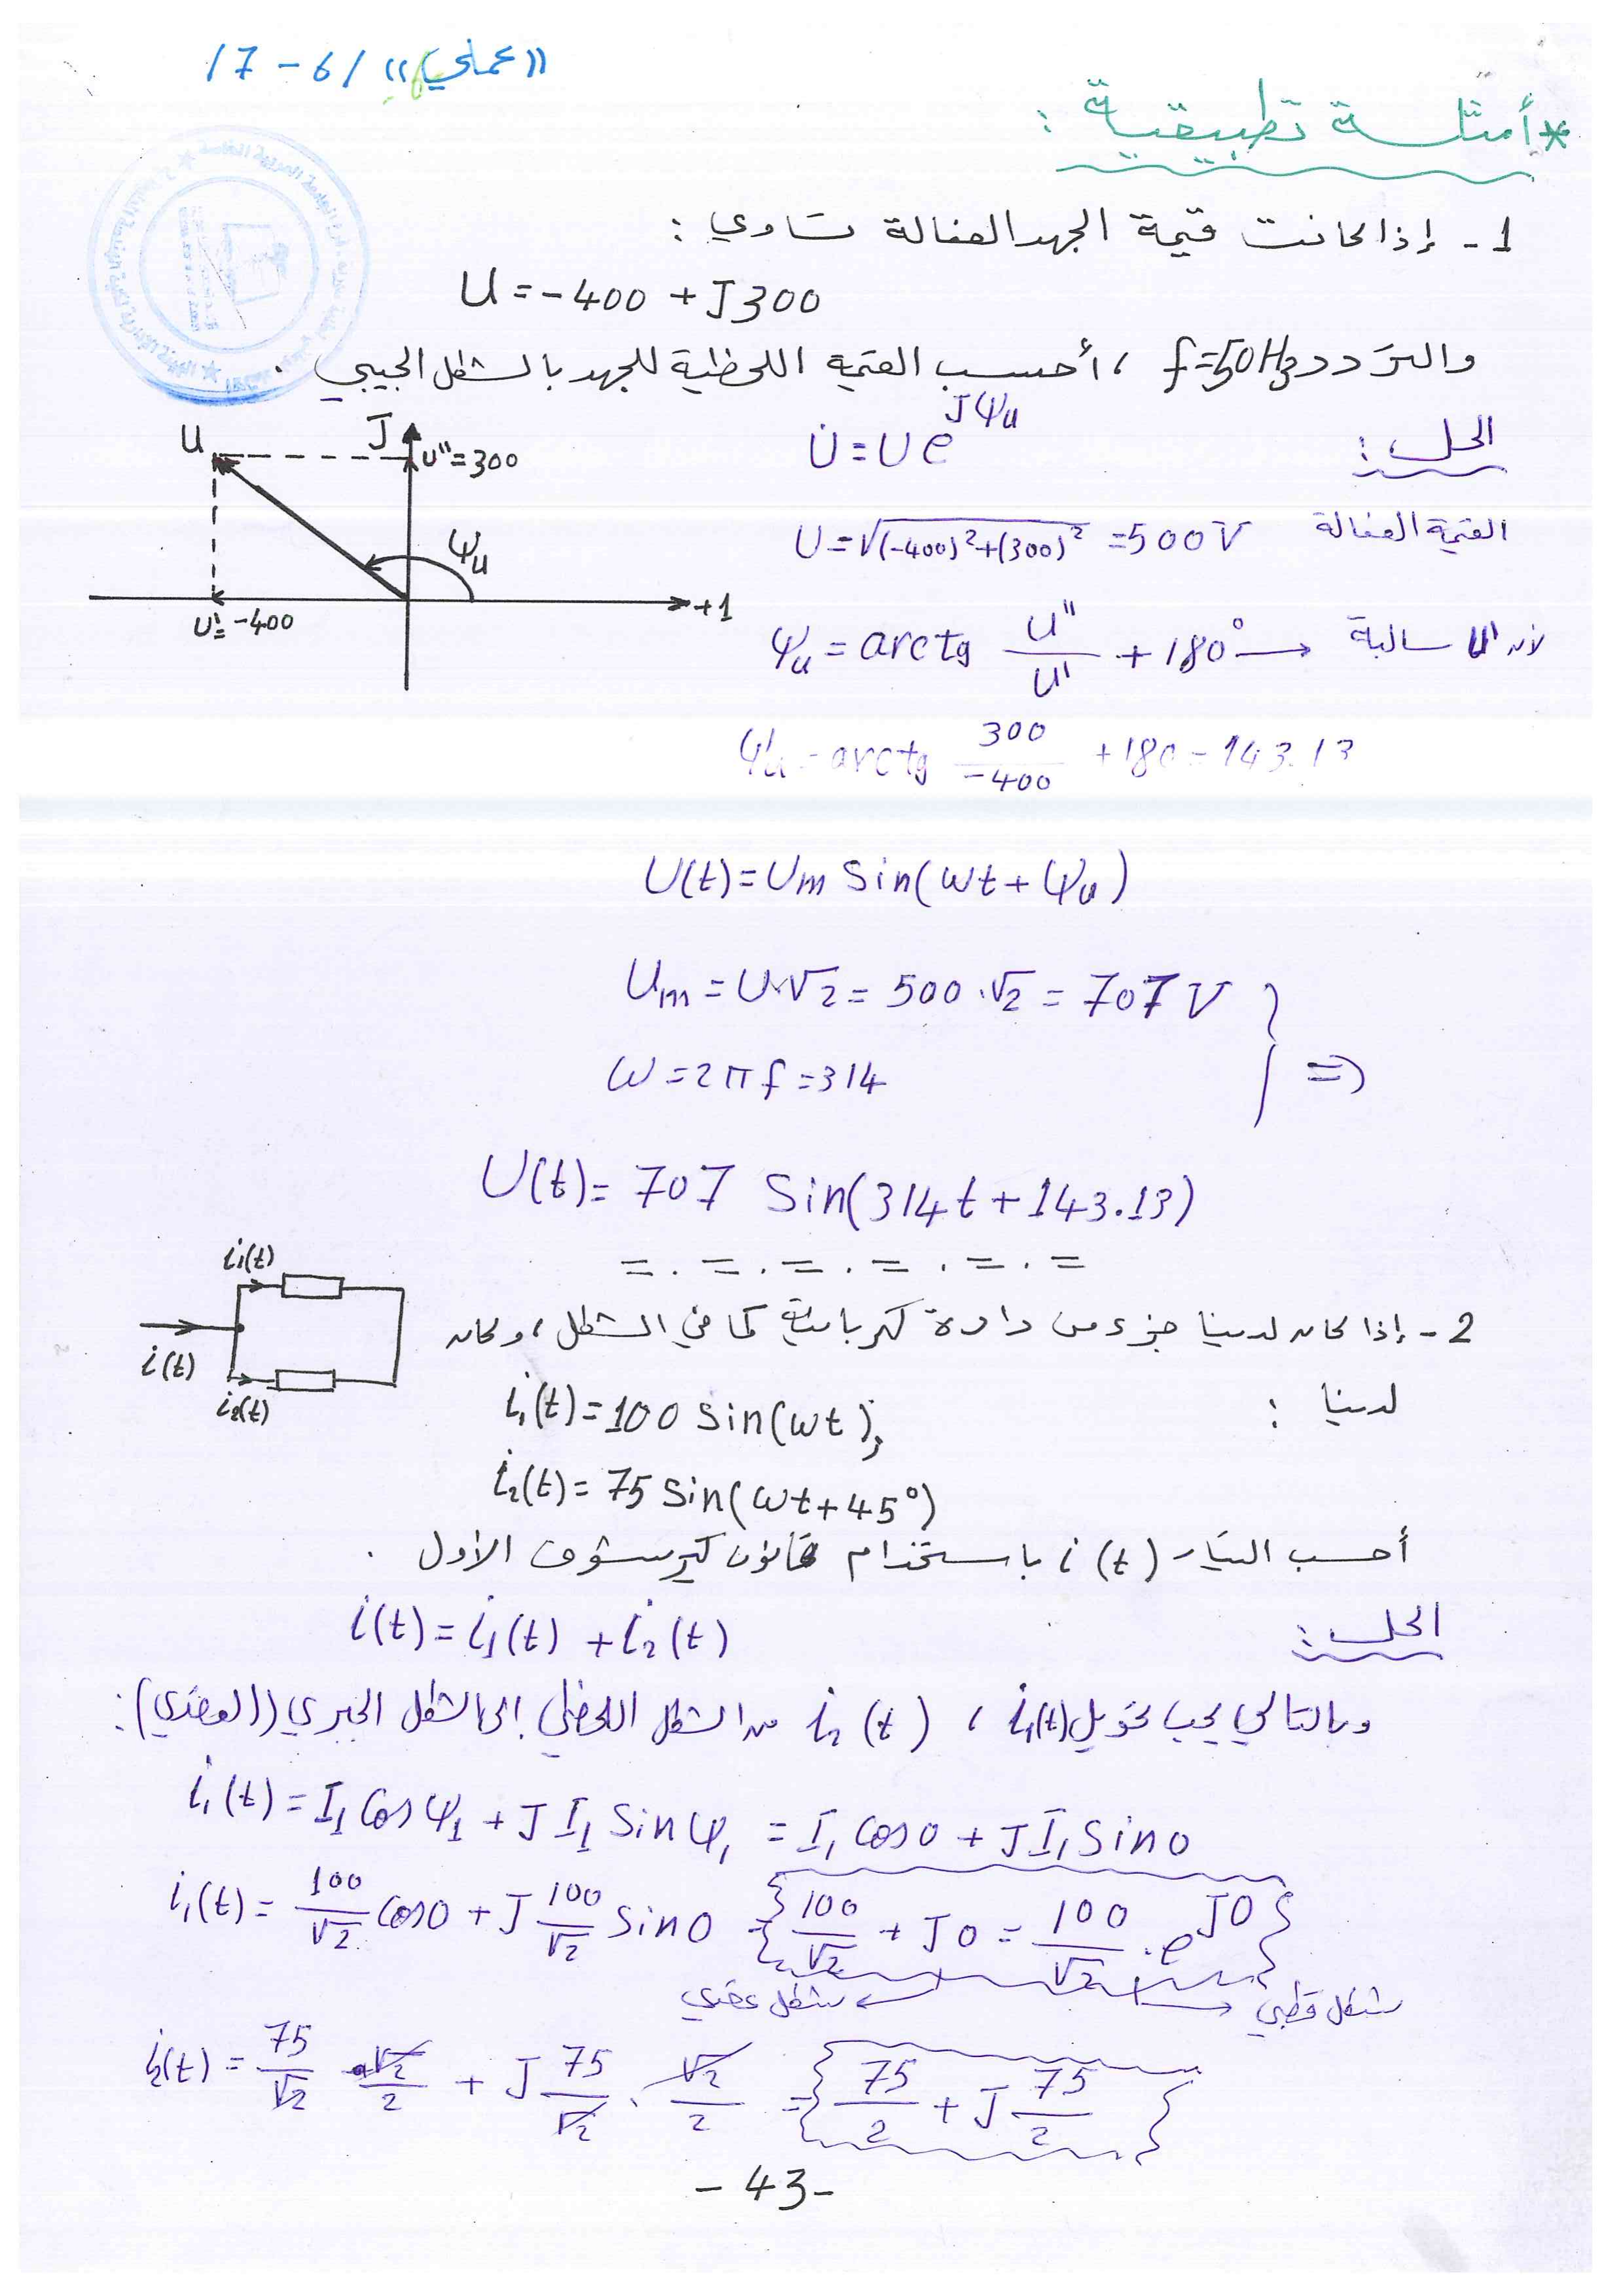 ((عملي)) /6-7/
* أمثلة تطبيقية :
1- إذا كانت قيمة الجهد الفعالة تساوي :
U = -400 + J300
والتردد f=50Hz ، أحسب القيمة اللحظية للجهد بالشكل الجيبي .
الحل :
U̇ = U e^{Jψu}
U
J
U''=300
ψu
U'=-400
+1
القيمة الفعالة U=√((-400)²+(300)²) =500V
ψu = arctg U''/U' + 180° → لأن U' سالبة
ψu = arctg 300/-400 +180 = 143.13
U(t) = Um Sin(ωt + ψu)
Um = U.√2 = 500.√2 = 707 V
ω = 2πf = 314 } =>
U(t) = 707 Sin(314t + 143.13)
= . = . = . = . = . =
i1(t)
i(t)
i2(t)
2- إذا كان لدينا جزء من دارة كهربائية كما في الشكل ، وكان
لدينا :
i1(t) = 100 Sin(ωt) ;
i2(t) = 75 Sin(ωt+45°)
أحسب التيار i(t) باستخدام قانون كيرشوف الأول .
الحل :
i(t) = i1(t) + i2(t)
وبالتالي يجب تحويل i1(t) ، i2(t) من الشكل اللحظي إلى الشكل الجبري ((العقدي) :
i1(t) = I1 Cos φ1 + J I1 Sin φ1 = I1 Cos0 + J I1 Sin0
i1(t) = 100/√2 Cos0 + J 100/√2 Sin0 = {100/√2 + J0 = 100/√2 . e^{J0}}
شكل عقدي ← → شكل قطبي
i2(t) = 75/√2 . √2/2 + J 75/√2 . √2/2 = {75/2 + J 75/2}
- 43 -